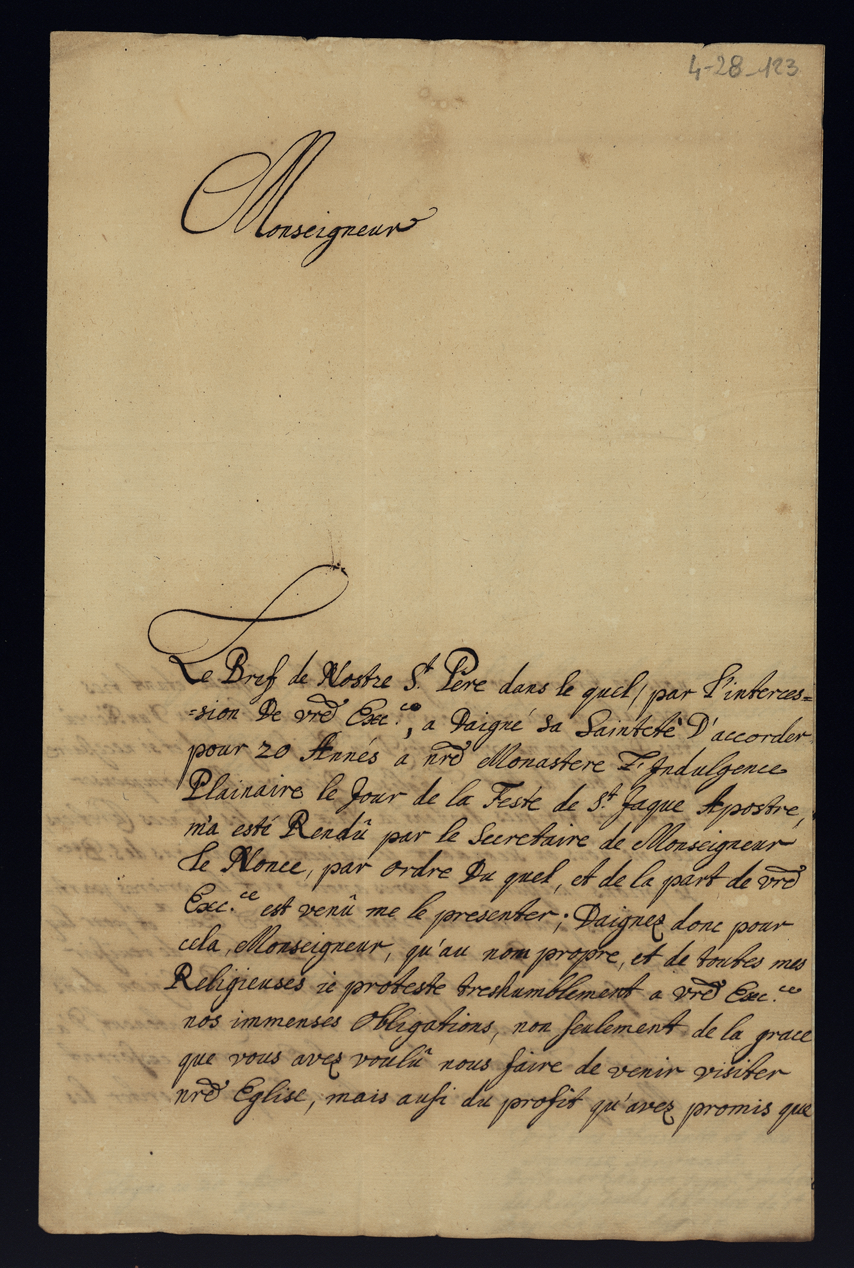 4-28-123
Monseigneur
Le Bref de Nostre S.t Père dans le quel, par l'interces=
=sion De vrẽ Exc.ce, a Daigné sa Sainteté D'accorder
pour 20 Annés a nrẽ Monastere L'Indulgence
Plainaire le Jour de la Feste de S.t Jaque Apostre,
m'a esté Rendû par le Secretaire de Monseigneur
Le Nonce, par ordre Du quel, et de la part de vrẽ
Exc.ce est venû me le presenter; Daignez donc pour
cela, Monseigneur, qu'au nom propre, et de toutes mes
Religieuses ie proteste treshumblement a vrẽ Exc.ce
nos immenses Obligations, non seulement de la grace
que vous avez voulû nous faire de venir visiter
nrẽ Eglise, mais ausi du profit qu'avez promis que